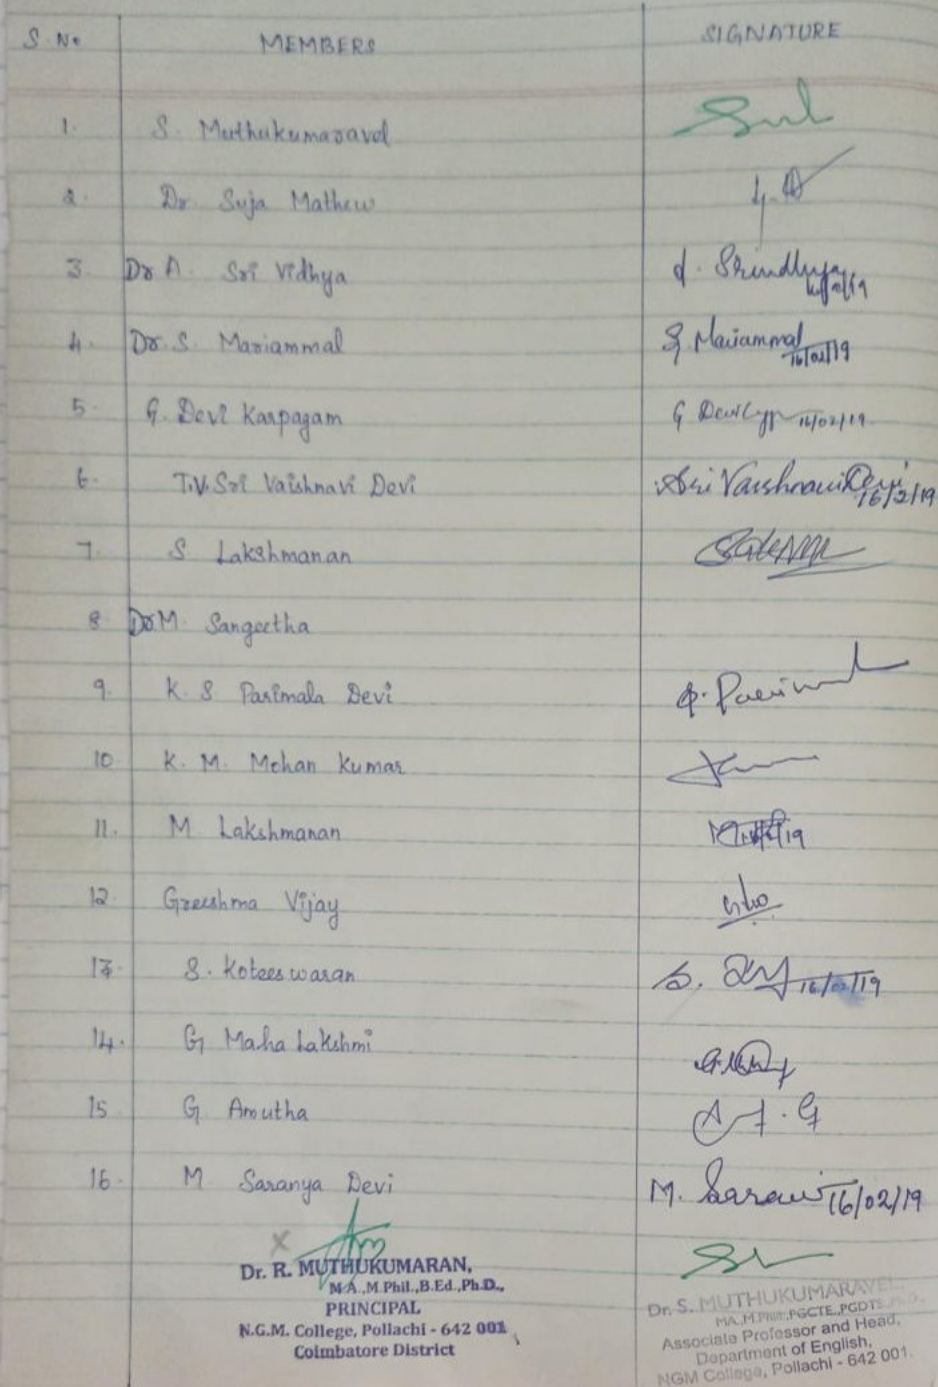 S. No MEMBERS SIGNATURE
1. S. Muthukumaravel
2. Dr Suja Mathew
3. Dr A. Sri Vidhya
4. Dr. S. Mariammal S. Mariammal 16/02/19
5. G. Devi Karpagam G Devi 16/02/19
6. T.V. Sri Vaishnavi Devi Sri Vaishnavi Devi 16/2/19
7. S Lakshmanan
8 Dr M. Sangeetha
9. K. S Parimala Devi
10 K. M. Mohan Kumar
11. M Lakshmanan
12. Greeshma Vijay
13. S. Koteeswaran S. 16/02/19
14. G Maha Lakshmi
15 G Amutha
16. M Saranya Devi M. 16/02/19
Dr. R. MUTHUKUMARAN,
M.A.,M.Phil.,B.Ed.,Ph.D.,
PRINCIPAL
N.G.M. College, Pollachi - 642 001
Coimbatore District
Dr. S. MUTHUKUMARAVEL
MA.,M.Phil.,PGCTE.,PGDTS.,Ph.D.,
Associate Professor and Head,
Department of English,
NGM College, Pollachi - 642 001.